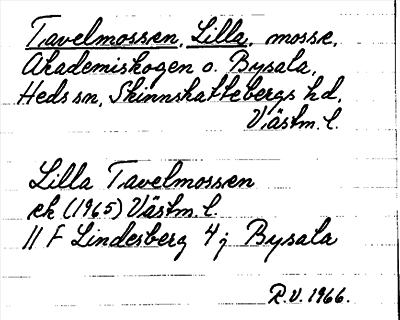 Tavelmossen, Lilla, mosse,
Akademiskogen o. Bysala,
Heds sn, Skinnskattebergs hd,
Västm. l.
Lilla Tavelmossen
ek (1965) Västm. l.
11 F Lindesberg 4 j Bysala
R.V. 1966.